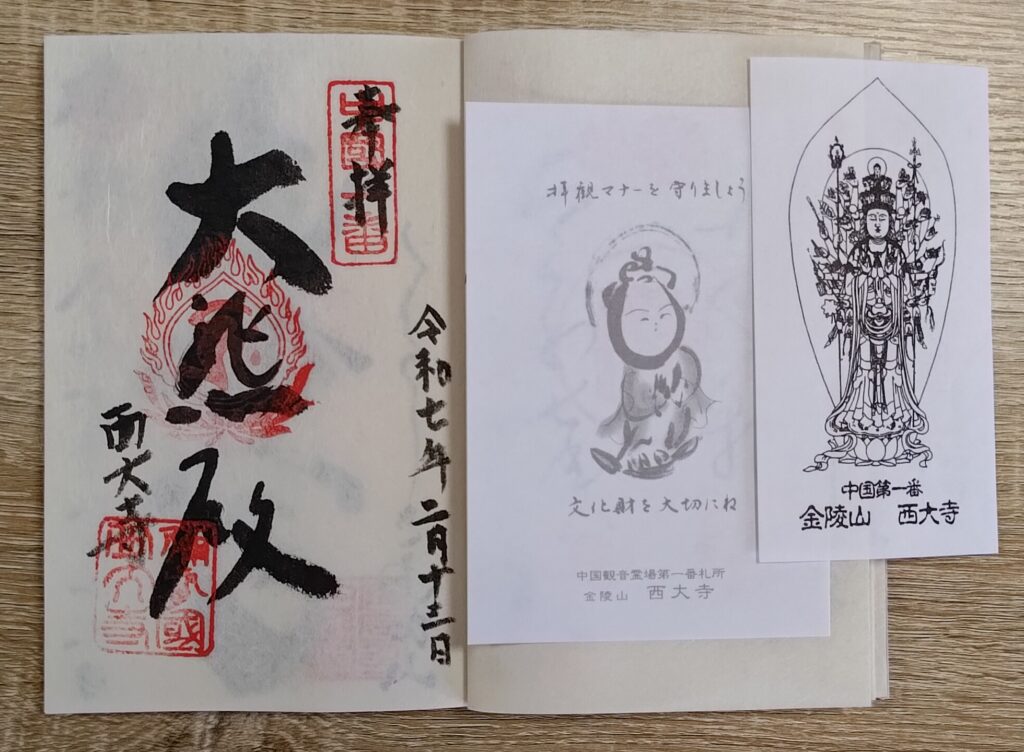 奉拝
令和七年二月十三日
大悲殿
西大寺
拝観マナーを守りましょう
文化財を大切にね
中国観音霊場第一番札所
金陵山 西大寺
中国第一番
金陵山 西大寺